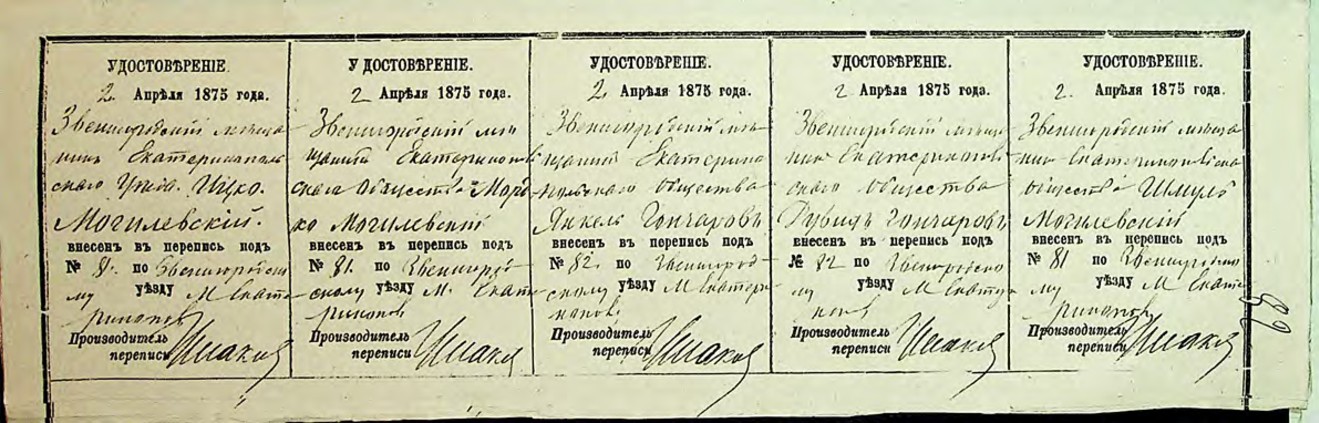 УДОСТОВѢРЕНІЕ.
2. Апрѣля 1875 года.
Звенигородскій мѣща-
нинъ Екатеринополь
скаго Ицко.
Могилевскій.
внесенъ въ перепись подъ
№ 81. по Звенигородско
му уѣзду М Екате-
ринопов
Производитель
переписи
УДОСТОВѢРЕНІЕ.
2 Апрѣля 1875 года.
Звенигородскій мѣ
щанинъ Екатеринопо
скаго общества Мор
ко Могилевскій
внесенъ въ перепись подъ
№ 81. по Звенигород
скому уѣзду М. Екате
ринопов
Производитель
переписи
УДОСТОВѢРЕНІЕ.
2. Апрѣля 1875 года.
Звенигородскій мѣ-
щанинъ Екатерино
польскаго общества
Янкель Гончаровъ
внесенъ въ перепись подъ
№ 82. по Звенигород
скому уѣзду М Екатери
нопов
Производитель
переписи
УДОСТОВѢРЕНІЕ.
2 Апрѣля 1875 года.
Звенигородскій мѣща
нинъ Екатеринопов
скаго общества
Рувинъ Гончаровъ
внесенъ въ перепись подъ
№ 82 по Звенигородско
му уѣзду М Екатери
нопов
Производитель
переписи
УДОСТОВѢРЕНІЕ.
2. Апрѣля 1875 года.
Звенигородскій мѣща
нинъ Екатеринопольскаго
общества Шмуль
Могилевскій
внесенъ въ перепись подъ
№ 81 по Звенигородско
му уѣзду М Екате
ринопов
Производитель
переписи